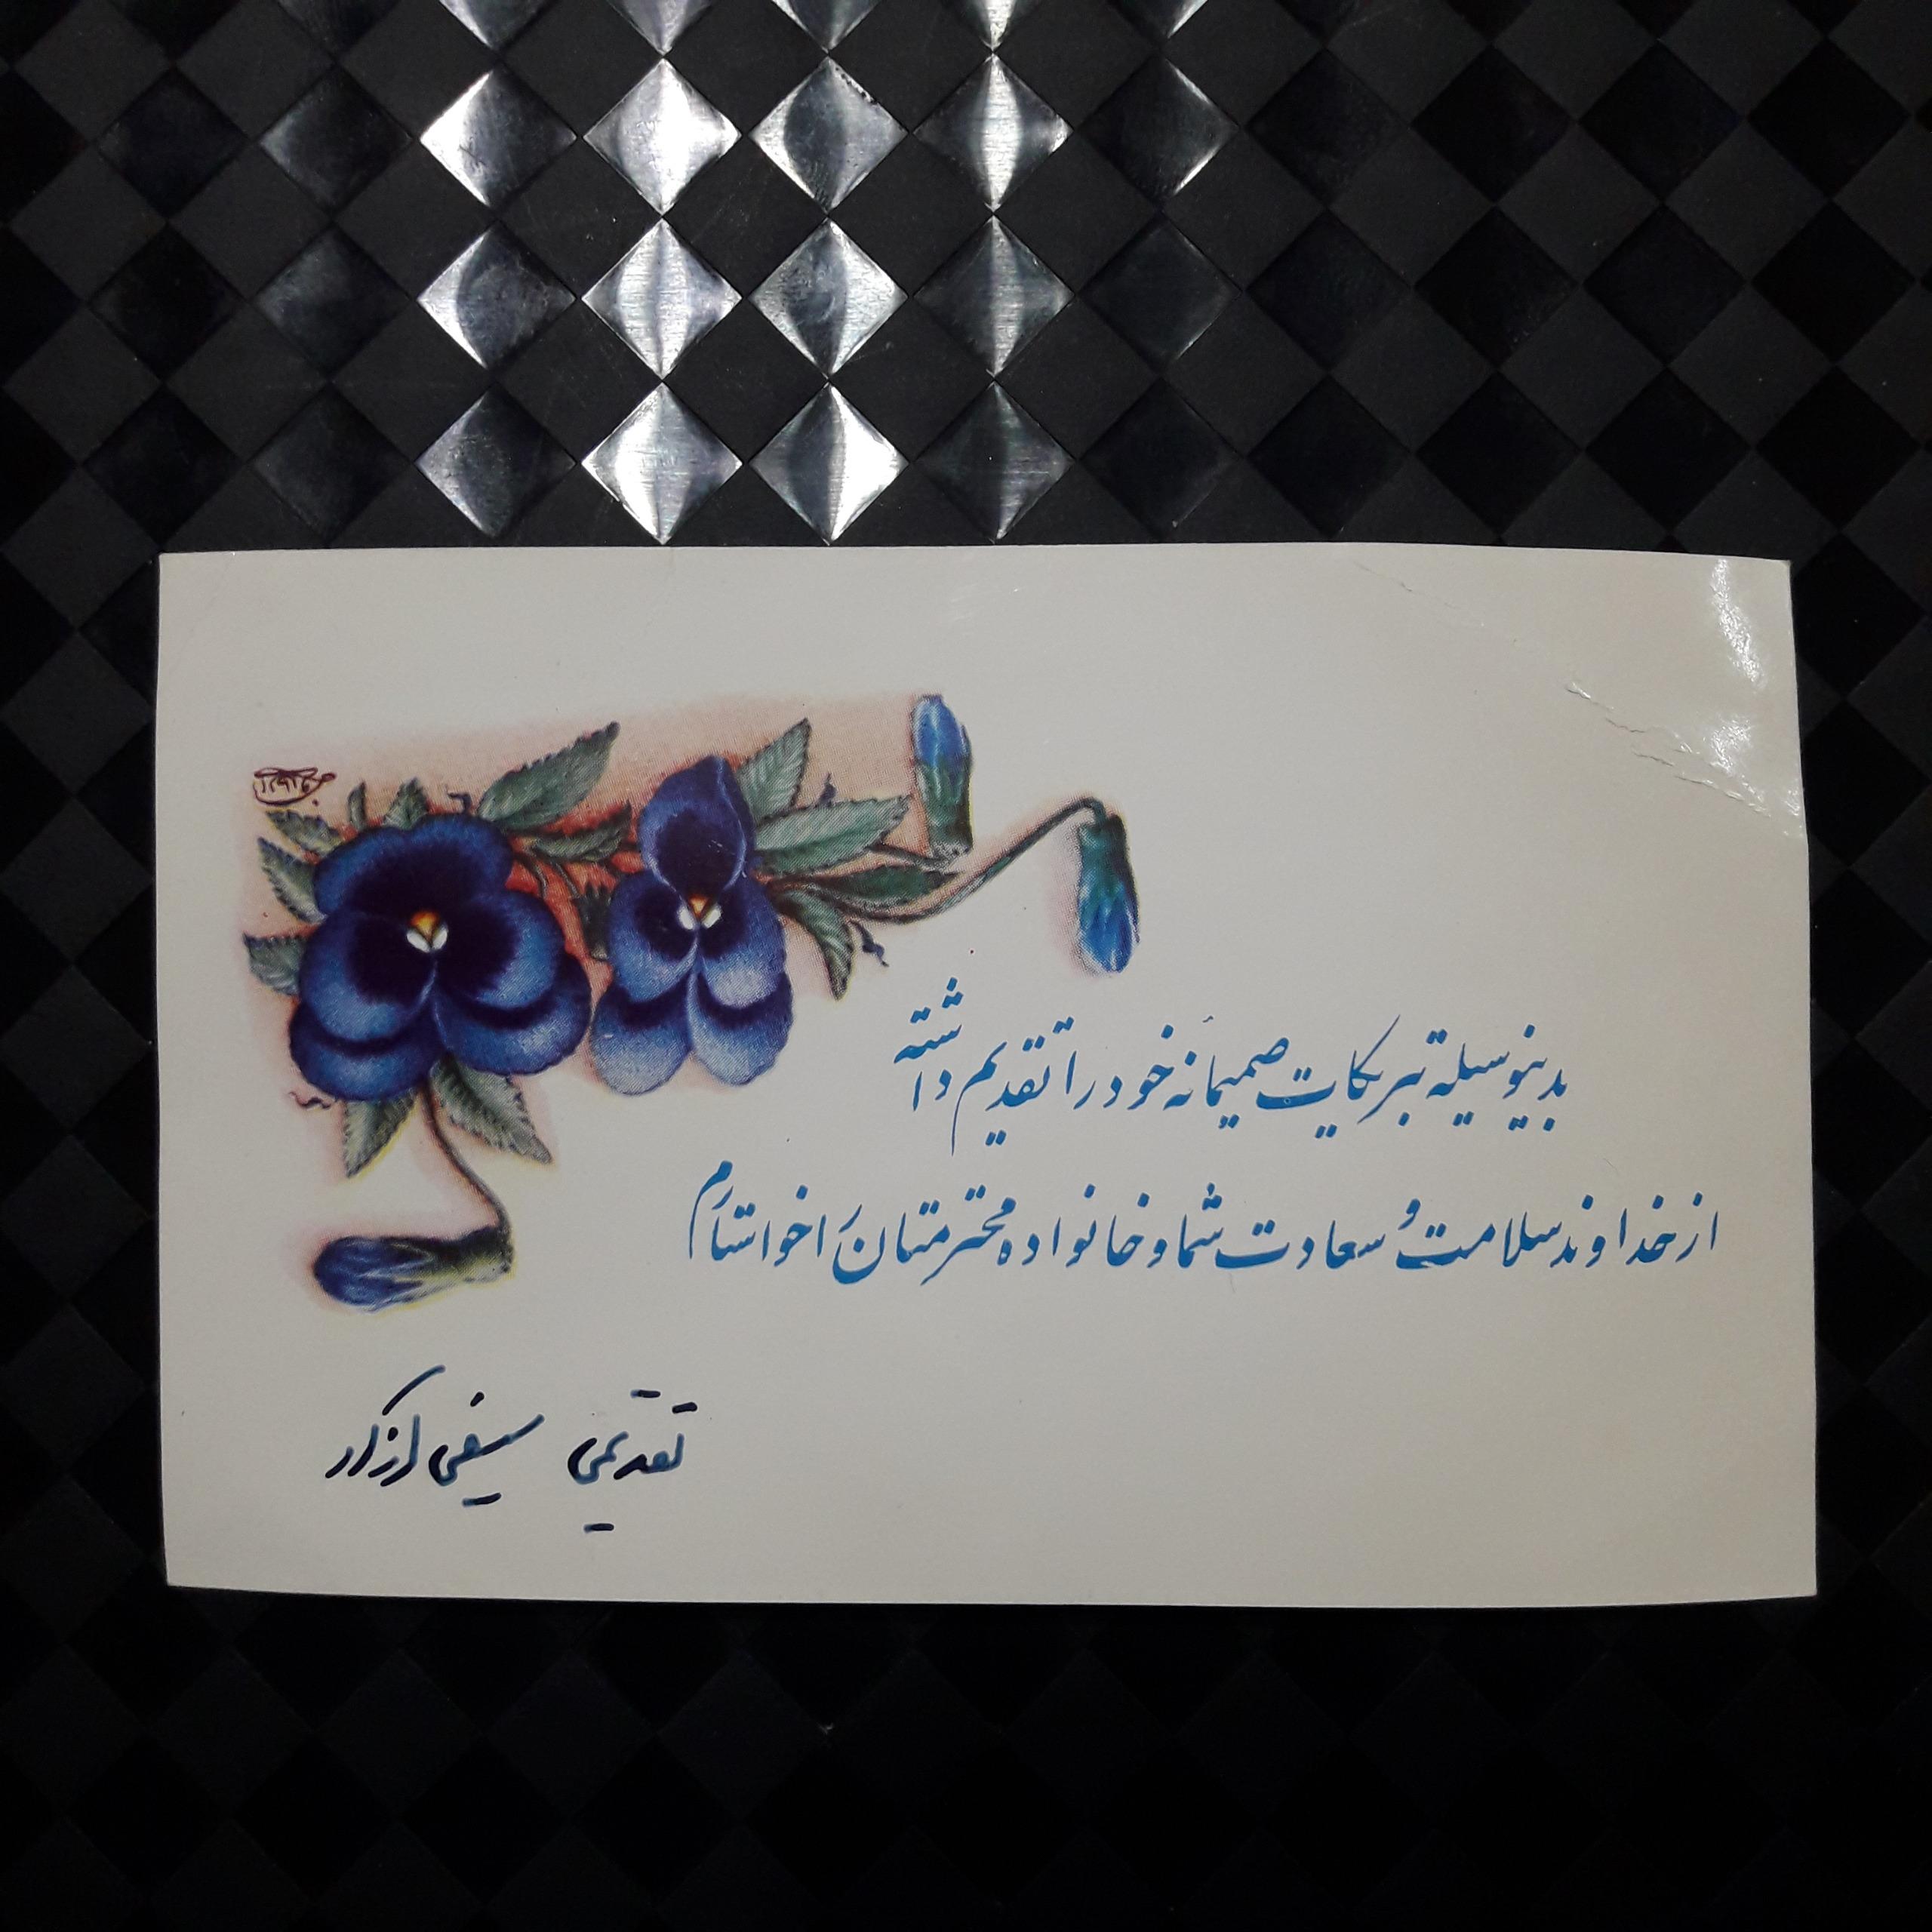 بدینوسیله تبریکات صمیمانه خود را تقدیم داشته
از خداوند سلامت و سعادت شما و خانواده محترمتان را خواستارم
تقدیمی سیفی